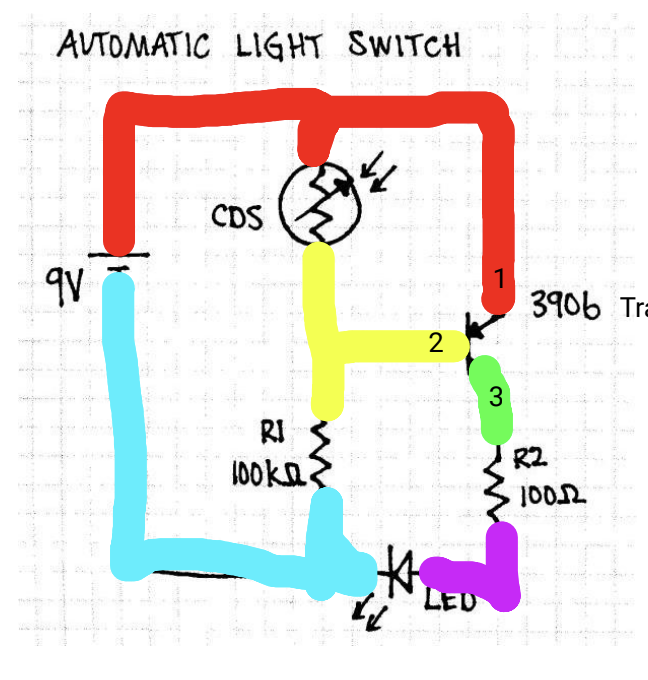 AUTOMATIC LIGHT SWITCH
CDS
9V
1
390b Tra
2
3
R1
100kΩ
R2
100Ω
LED